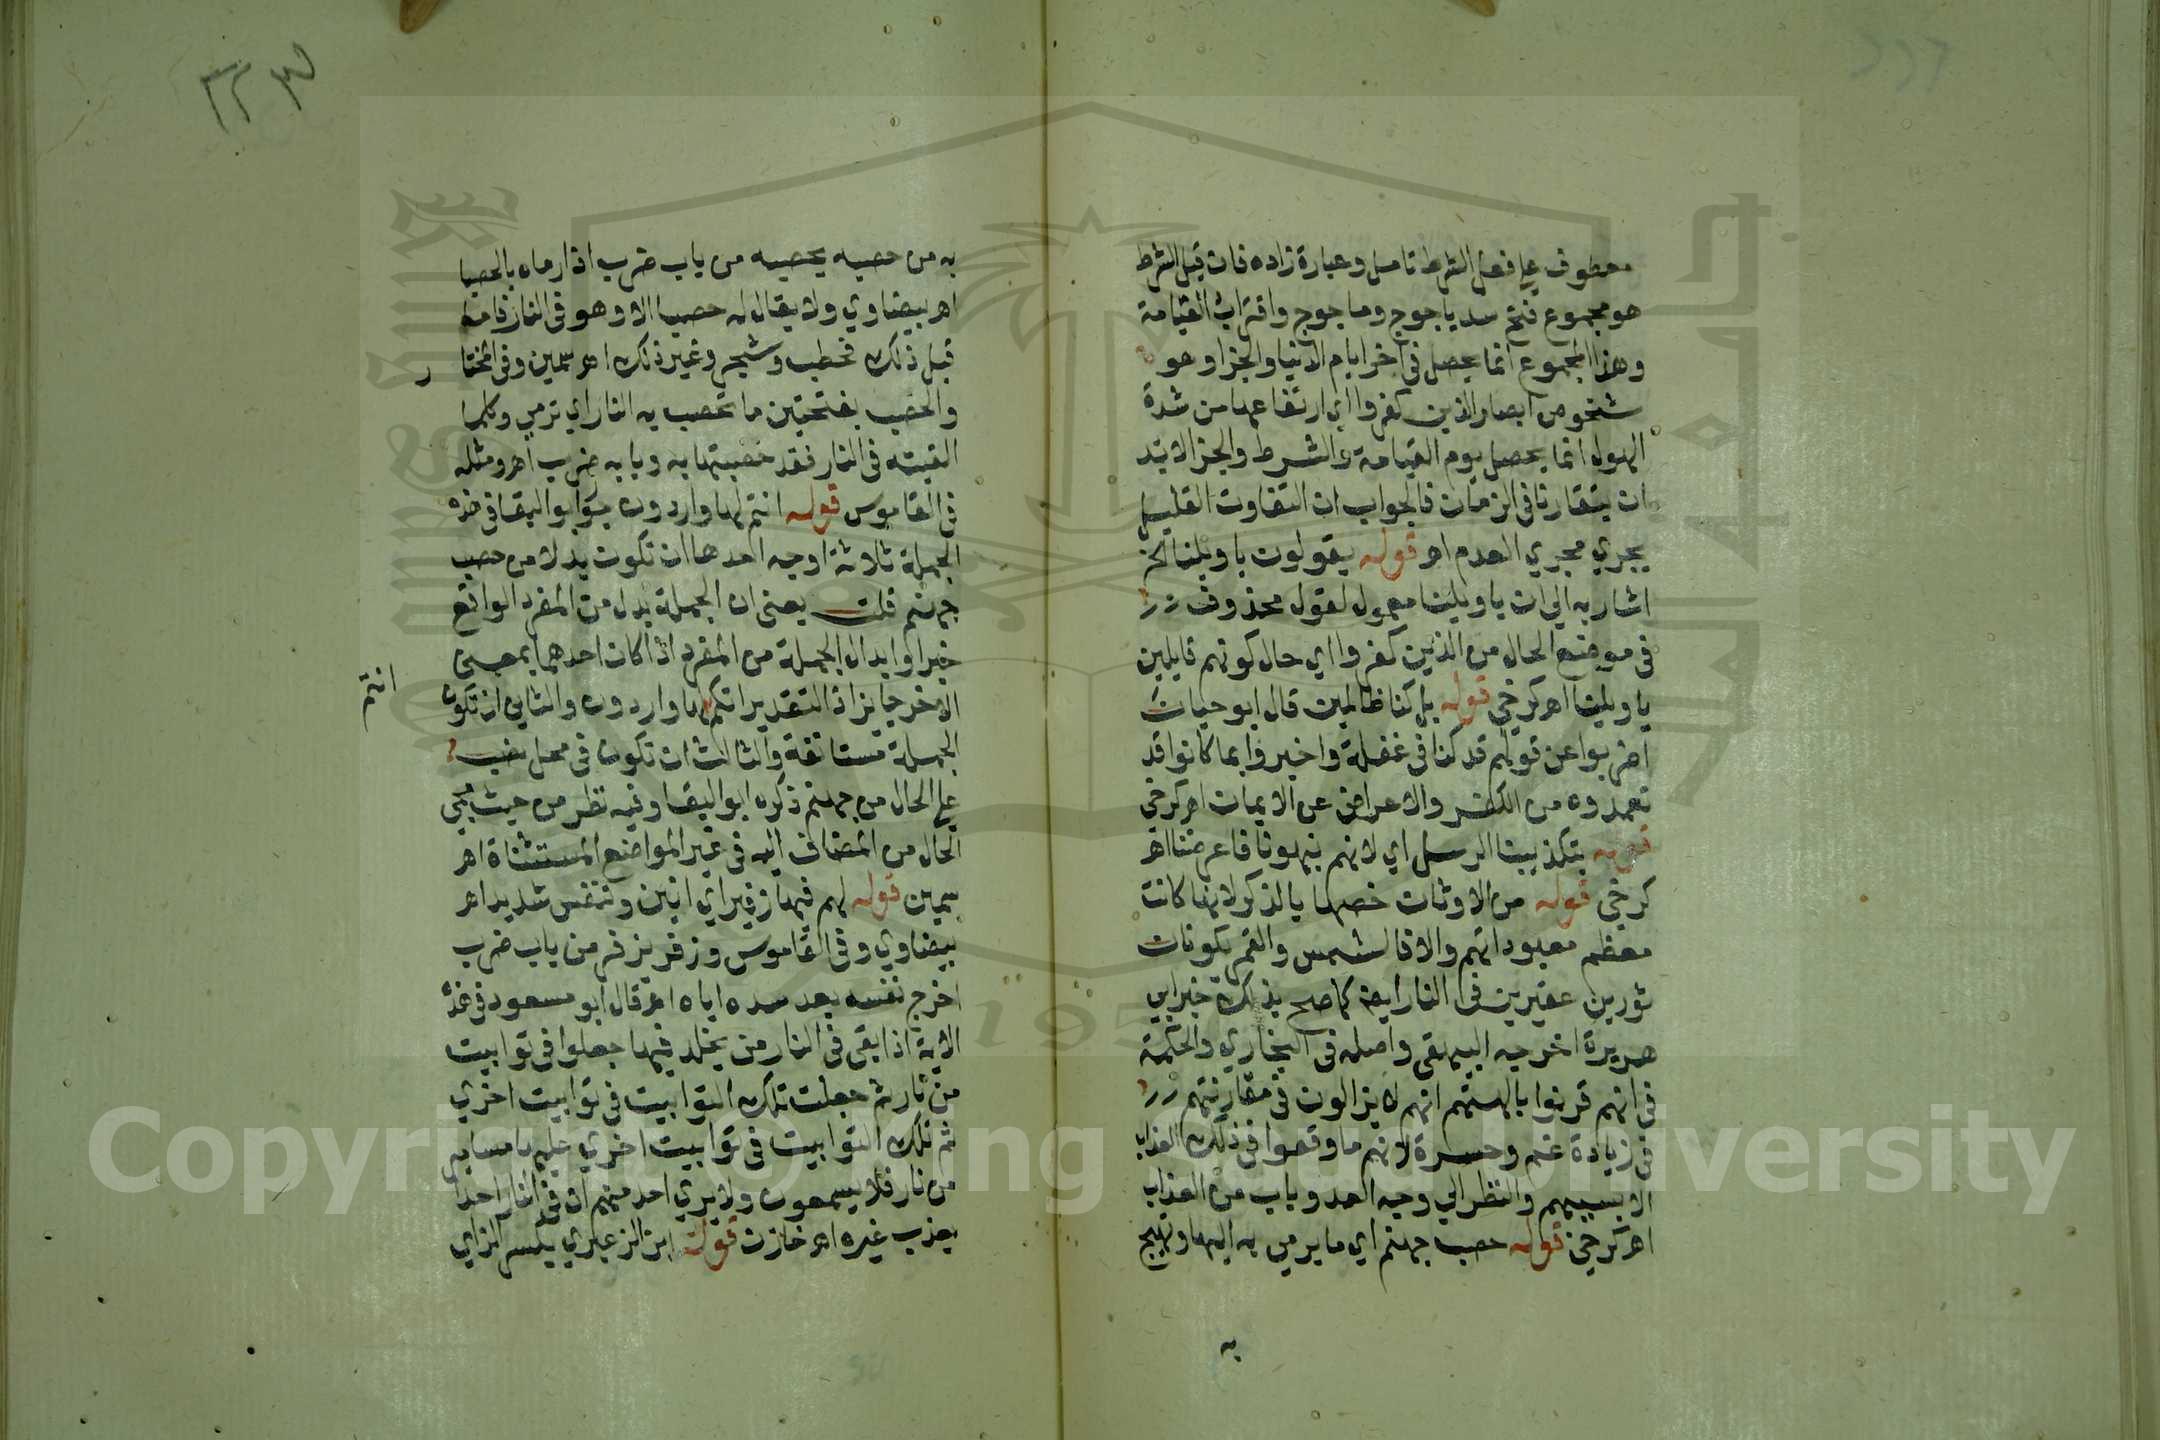 معطوف على فعل الشرط تامل وعبارة زاده فان قيل الشرط
هو مجموع فتح سد ياجوج وماجوج واقتراب القيامة
وهذا المجموع انما يحصل في اخر ايام الدنيا والجزا وهو
شخوص ابصار الذين كفروا اي ارتفاعها من شدة
الهول انما يحصل يوم القيامة والشرط والجزا لابد
ان يتقارنا في الزمان فالجواب ان التفاوت القليل
يجري مجري العدم اهـ قوله يقولون ياويلنا الخ
اشار به الي ان ياويلنا معمول لقول محذوف
في موضع الحال من الذين كفروا اي حال كونهم قايلين
ياويلنا اهـ كرخي قوله بل كنا ظالمين قال ابو حيان
اضربوا عن قولهم قد كنا في غفلة واخبروا بما كانوا قد
تعمدوه من الكفر والاعراض عن الايمان اهـ كرخي
قوله بتكذيبنا الرسل اي لانهم نبهونا فاعرضنا اهـ
كرخي قوله من الاوثان خصها بالذكر لانها كانت
معظم معبوداتهم والا فالشمس والقمر يكونان
ثورين عقيرين في النار ايضا كما صح بذلك خبر ابي
هريرة اخرجه البيهقي واصله في البخاري والحكمة
في انهم قرنوا بالهتهم انهم لا يزالون في مقارنتهم
في زيادة غم وحسرة لانهم ما وقعوا في ذلك العذاب
الا بسببهم والنظر الي وجه العدو باب من العذاب
اهـ كرخي قوله حصب جهنم اي ما يرمى به اليها وتهيج
به
٢٢٣
به من حصبه يحصبه من باب ضرب اذا رماه بالحصبا
اهـ بيضاوي ولا يقال له حصب الا وهو في النار فاما
قبل ذلك فحطب وشجر وغير ذلك اهـ سمين وفي المختار
والحصب بفتحتين ما تحصب به النار اي ترمي وكلما
القيته في النار فقد حصبتها به وبابه ضرب اهـ ومثله
في القاموس قوله انتم لها واردون جوز ابو البقا في هذه
الجملة ثلاثة اوجه احدها ان تكون بدلا من حصب
جهنم قلت يعني ان الجملة بدل من المفرد الواقع
خبرا وابدال الجملة من المفرد اذا كان احدهما بمعنى
الاخر جايز اذ التقدير انكم لها واردون والثاني ان تكون
انتم
الجملة مستانفة والثالث ان تكون في محل نصب
على الحال من جهنم ذكره ابو البقا وفيه نظر من حيث مجي
الحال من المضاف اليه في غير المواضع المستثناة اهـ
سمين قوله لهم فيها زفير اي انين وتنفس شديد اهـ
بيضاوي وفي القاموس وزفر يزفر من باب ضرب
اخرج نفسه بعد مده اياه اهـ قال ابو مسعود في هذه
الاية اذا بقي في النار من يخلد فيها جعلوا في توابيت
من نار ثم جعلت تلك التوابيت في توابيت اخري
ثم تلك التوابيت في توابيت اخري عليها مسامير
من نار فلا يسمعون ولا يري احد منهم ان في النار احدا
يعذب غيره اهـ خازن قوله ابن الزبعري بكسر الزاي
Copyright © King Saud University